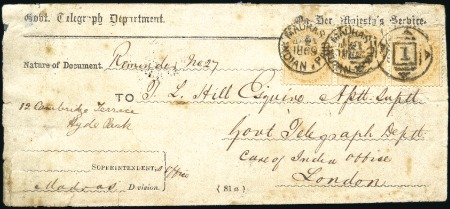 Govt. Telegraph Department.
On Her Majesty's Service.
MADRAS
1869
INDIAN
MADRAS
1
Nature of Document. Reminder No 27
TO T. L. Hill Esquire Asstt. Suptt.
12 Cambridge Terrace
Hyde Park
Govt Telegraph Dept
Care of India Office
London
SUPERINTENDENT.s Office
Madras Division.
(81a)